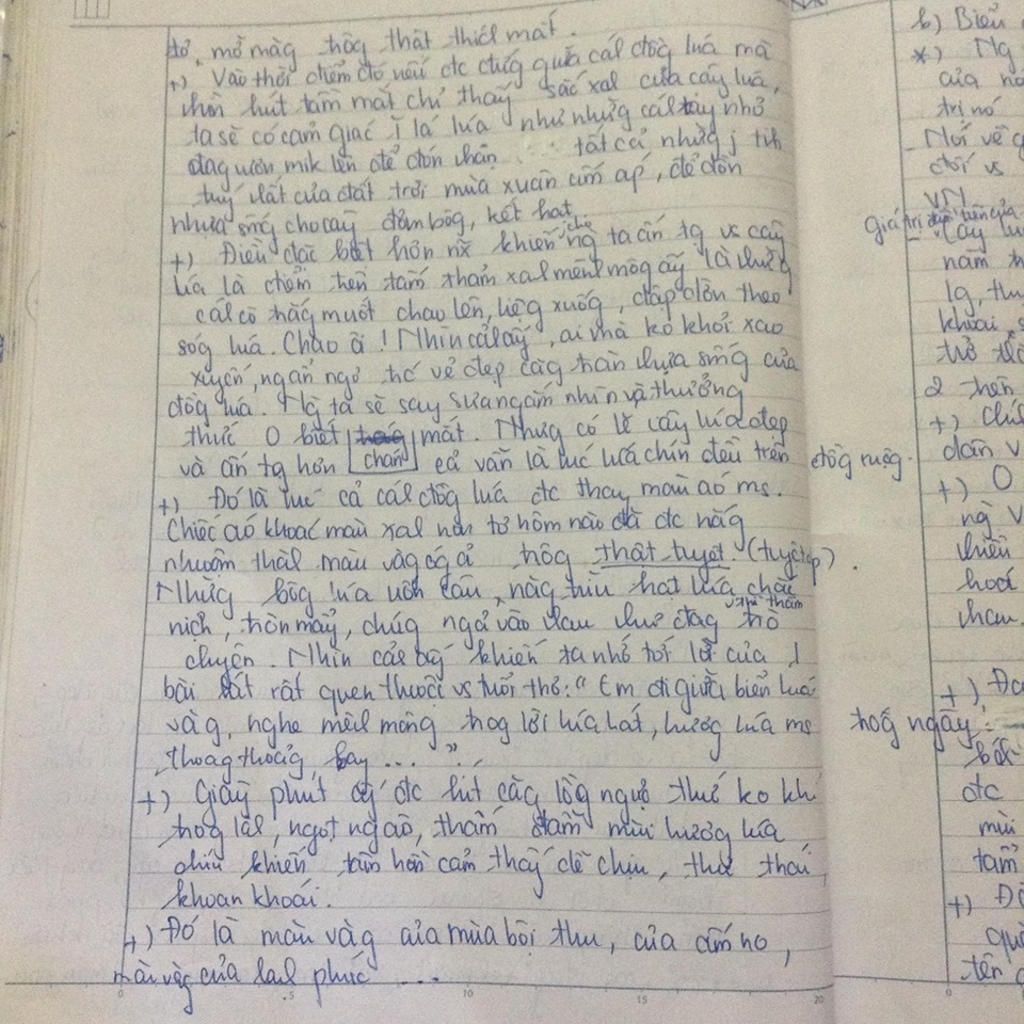 tơ, mở màg trôg thật thích mắt.
+) Vào thời điểm đó nếu đc đứg giữa cánh đồg lúa mà
nhìn hút tầm mắt chỉ thấy sắc xal của cây lúa,
ta sẽ có cảm giác lá lúa như nhữg cánh tay nhỏ
đag vươn mik lên để đón nhận tất cả nhữg j tih
tuý nhất của đất trời mùa xuân ấm áp, để dồn
nhựa sốg cho cây đơm bôg, kết hạt
+) Điều đặc biệt hơn nx khiến cho ng ta ấn tg vs cây
lúa là điểm trên tấm thảm xal mênh môg ấy là nhữg
cánh cò trắg muốt chao lên, liệg xuốg, dập dờn theo
sóg lúa. Chao ôi! Nhìn cảnh ấy, ai mà ko khỏi xao
xuyến, ngẩn ngơ trc vẻ đẹp căg tràn nhựa sốg của
đồg lúa. Ng ta sẽ say sưa ngắm nhìn và thưởng
thức 0 biết chán mắt. Nhưg có lẽ cây lúa đẹp
và ấn tg hơn cả vẫn là lúc lúa chín đều trên đồg ruộg.
+) Đó là lúc cả cánh đồg lúa đc thay màu áo ms.
Chiếc áo khoác màu xal non tơ hôm nào đã đc nắg
nhuộm thàh màu vàg óg ả trôg thật tuyệt. (tuyệt đẹp)
Nhữg bôg lúa uốn câu, nặg trĩu hạt lúa chắc
nịch, tròn mẩy, chúg ngả vào nhau như đag thì thầm trò
chuyện. Nhìn cảnh ấy khiến ta nhớ tới lời của 1
bài hát rất quen thuộc vs tuổi thơ: "Em đi giữa biển lúa
vàg, nghe mênh mông trog lời lúa hát, hươg lúa ms
thoag thoảg bay ..."
+) Giây phút ấy đc hít căg lồg ngực thứ ko khí
trog làh, ngọt ngào, thấm đẫm mùi hươg lúa
chín khiến tâm hồn cảm thấy dễ chịu, thư thái,
khoan khoái.
+) Đó là màu vàg của mùa bội thu, của ấm no,
màu vàg của hạnh phúc ...
b) Biểu
*) Ng
của n
trị nó
Nói về
đối vs
VN
Giá trị
cây lu
năm
lg, thu
khoai s
trở th
2 trên
+) chí
dân v
+) 0
ng V
nhiều
hoá
nhau.
+) Đo
trog ngày
bắt
đc
mùi
tấm
+) Đ
quê
tên